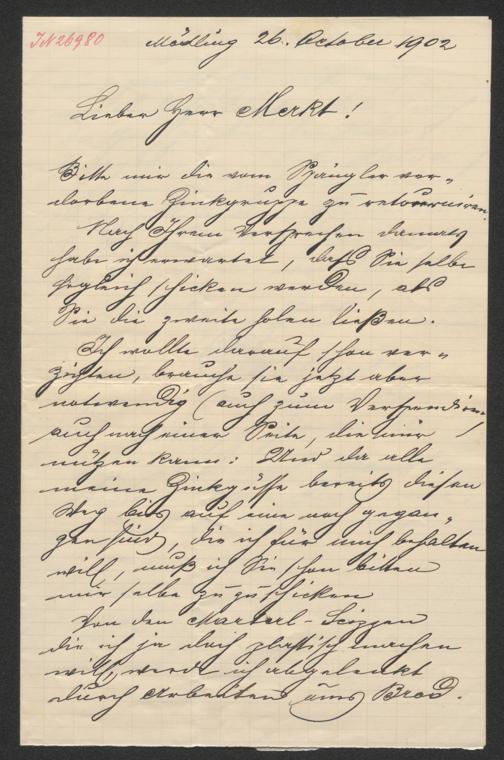 IN 26980
Mödling 26. October 1902
Lieber Herr Merkt!
Bitte mir die vom Spängler ver-
dorbene Zinkgruppe zu retourniren.
Nach Ihrem Versprechen damals
habe ich erwartet, daß Sie selbe
sogleich schicken werden, als
Sie die zweite holen ließen.
Ich wollte darauf schon ver-
zichten, brauche sie jetzt aber
notwendig (auch zum Versenden,
auch nach einer Seite, die mir
nützen kann: Und da alle
meine Zinkgüsse bereits diesen
Weg bis auf eine noch gegan-
gen sind, die ich für mich behalten
will, muß ich Sie schon bitten
mir selbe zuzuschicken
Von den Marterl-Scizzen
die ich ja doch plastisch machen
will, werde ich abgelenkt
durch Arbeiten ums Brod.